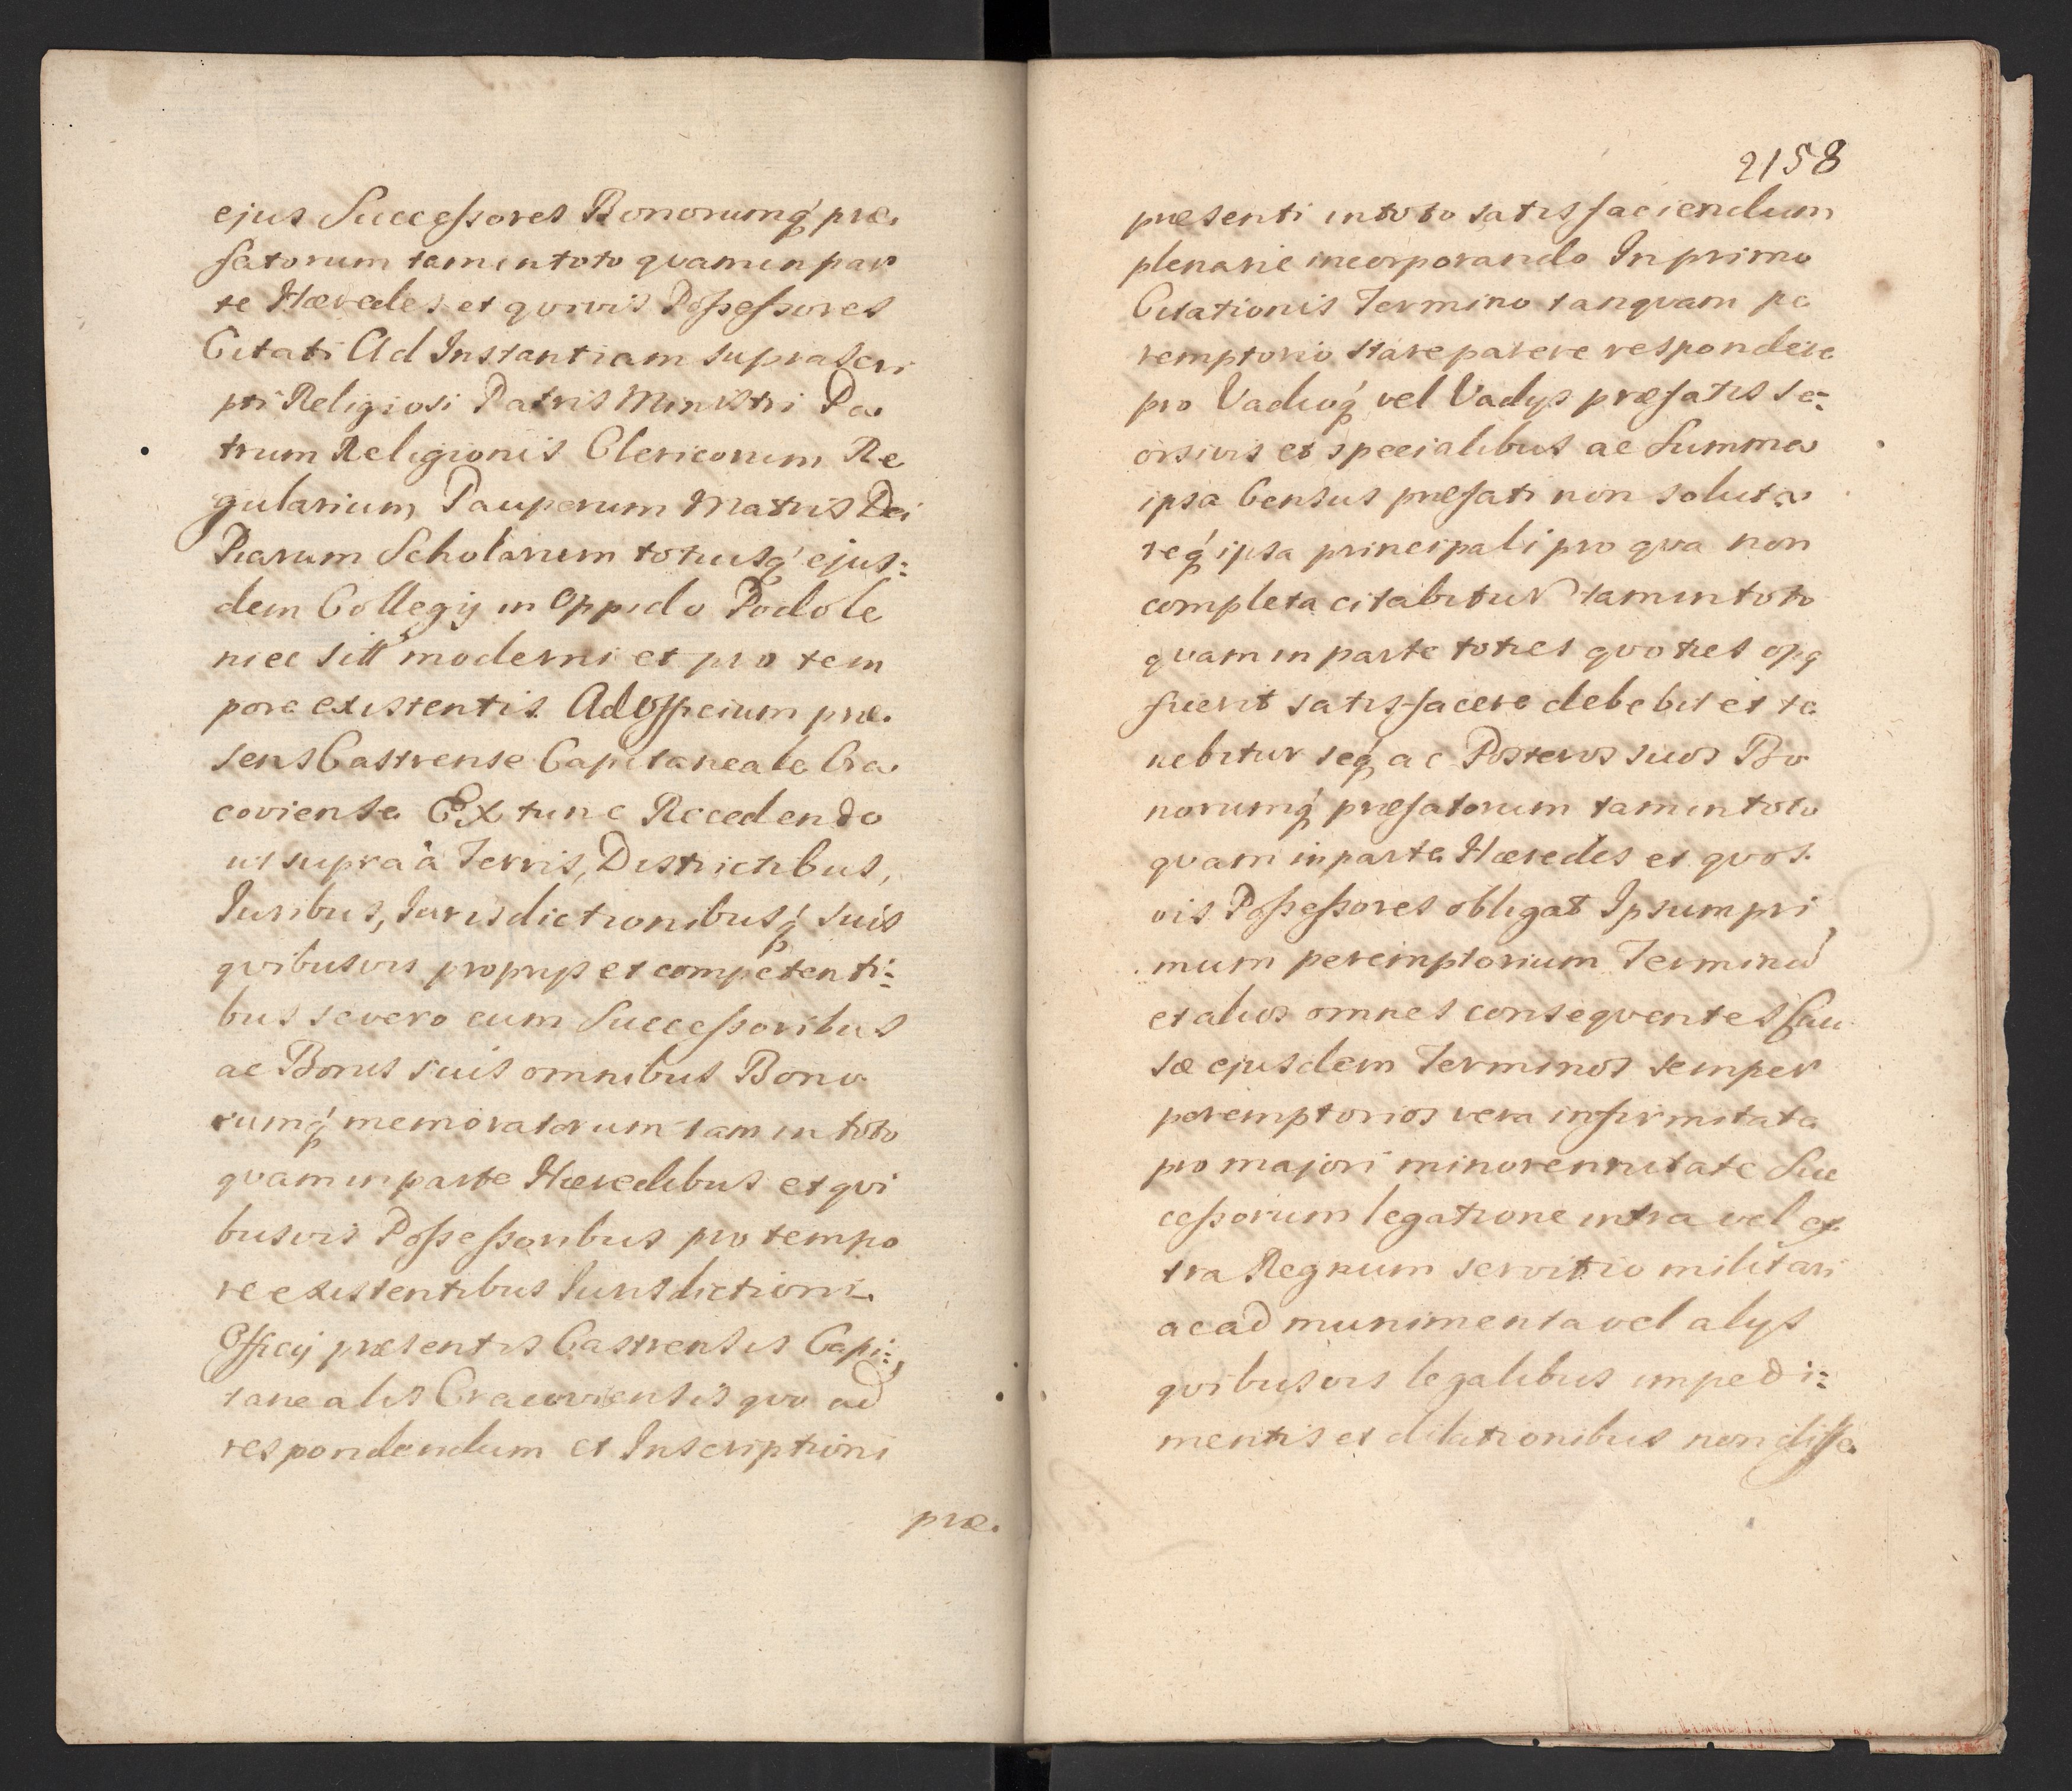 ejus Successores Bonorumq́ præ.
fatorum tam in toto qvam in par
te Hæredes et qvivis Possessores
Citati Ad Instantiam suprascri
pti Religiosi Patris Ministri Pa.
trum Religionis Clericorum Re
gularium Pauperum Matris Dei
Piarum Scholarum totiusq́ ejus:
dem Collegij in Oppido Podole
niec siti moderni et pro tem
pore existentis. Ad Officium præ.
sens Castrense Capitaneale Cra.
coviense Ex tunc Recedendo
ut supra à Terris, Districtibus,
Juribus, Jurisdictionibusq́ suis
qvibusvis proprijs et competenti:
bus se vero cum Successoribus
ac Bonis suis omnibus Bono.
rumq́ memoratorum tam in toto
qvam in parte Hæredibus et qvi
busvis Possessoribus pro tempo
re existentibus Jurisdictioni.
Officij præsentis Castrensis Capi:
tanealis Cracoviensis qvo ad
respondendum et Inscriptioni
præ.
2158
præsenti in toto satisfaciendum
plenarie incorporando In primo
Citationis Termino tanqvam pe
remptorio stare parere respondere
pro Vadioq́ vel Vadijs præfatis se:
orsivis et specialibus ac Summa
ipsa Census præfati non soluta
req́ ipsa principali pro qva non
completa citabitur tam in toto
qvam in parte toties qvoties opq
fuerit satisfacere debebit et te
nebitur seq́ ac Posteros suos Bo
norumq́ præfatorum tam in toto
qvam in parte Hæredes et qvos.
vis Possessores obligat Ipsum pri
mum peremptorium Terminū
et alios omnes conseqventes Cau
sæ ejusdem Terminos semper
peremptorios vera infirmitate
pro majori minorennitate Suc
cessorum legatione intra vel ex
tra Regnum servitio militari
ac ad munimenta vel alijs
qvibusvis legalibus impedi:
mentis et dilationibus non diffe.